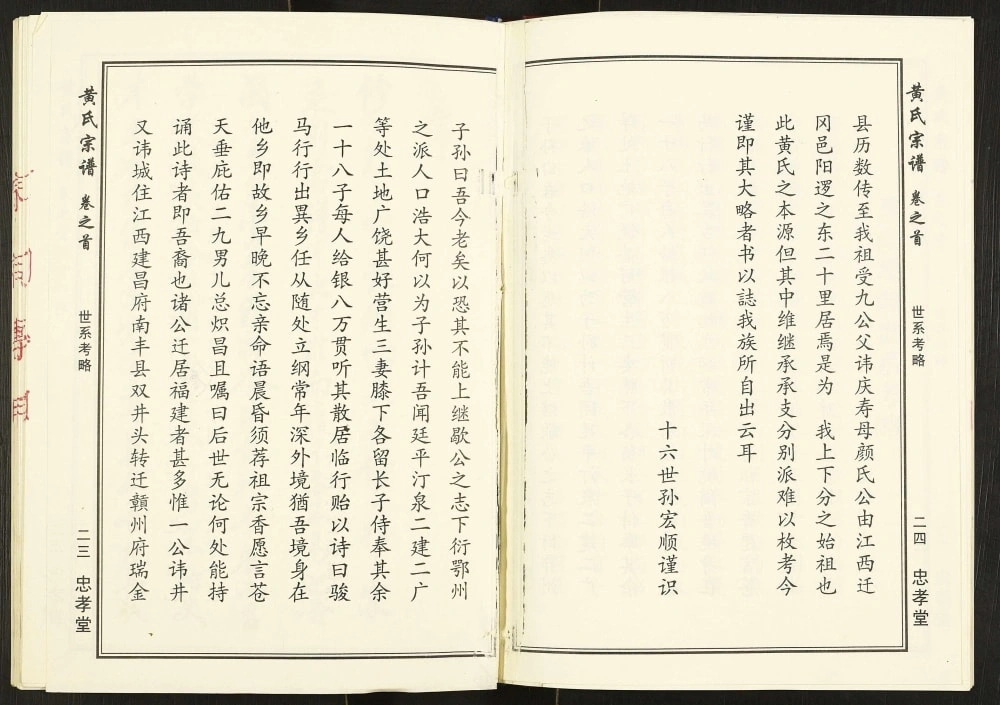 黄氏宗谱 卷之首 世系考略 二三 忠孝堂
子孙曰吾今老矣以恐其不能上继歇公之志下衍鄂州
之派人口浩大何以为子孙计吾闻廷平汀泉二建二广
等处土地广饶甚好营生三妻膝下各留长子侍奉其余
一十八子每人给银八万贯听其散居临行贻以诗曰骏
马行行出異乡任从随处立纲常年深外境猶吾境身在
他乡即故乡早晚不忘亲命语晨昏须荐祖宗香愿言苍
天垂庇佑二九男儿总炽昌且嘱曰后世无论何处能持
诵此诗者即吾裔也诸公迁居福建者甚多惟一公讳井
又讳城住江西建昌府南丰县双井头转迁贛州府瑞金
黄氏宗谱 卷之首 世系考略 二四 忠孝堂
县历数传至我祖受九公父讳庆寿母颜氏公由江西迁
冈邑阳逻之东二十里居焉是为 我上下分之始祖也
此黄氏之本源但其中维继承承支分别派难以枚考今
谨即其大略者书以誌我族所自出云耳
十六世孙宏顺谨识